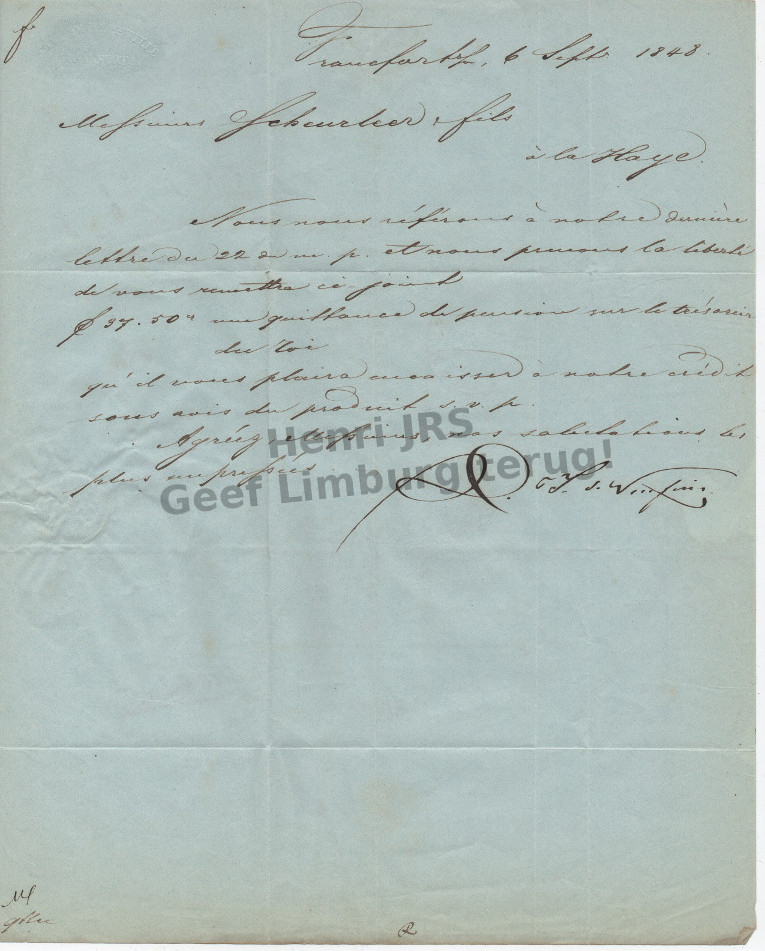 Francfort s/m, 6 Septr 1848.
Messieurs Scheurleer & fils
à la Haye.
Nous nous référons à notre dernière
lettre du 22 du m. p. et nous prenons la liberté
de vous remettre ci joint
f 37.50 une quittance de pension sur le trésorier
du roi
qu'il vous plaira encaisser à notre crédit
sous avis du produit s. v. p.
Agréez Messieurs, nos salutations les
plus empressées.
Henri JRS
Geef Limburg terug!